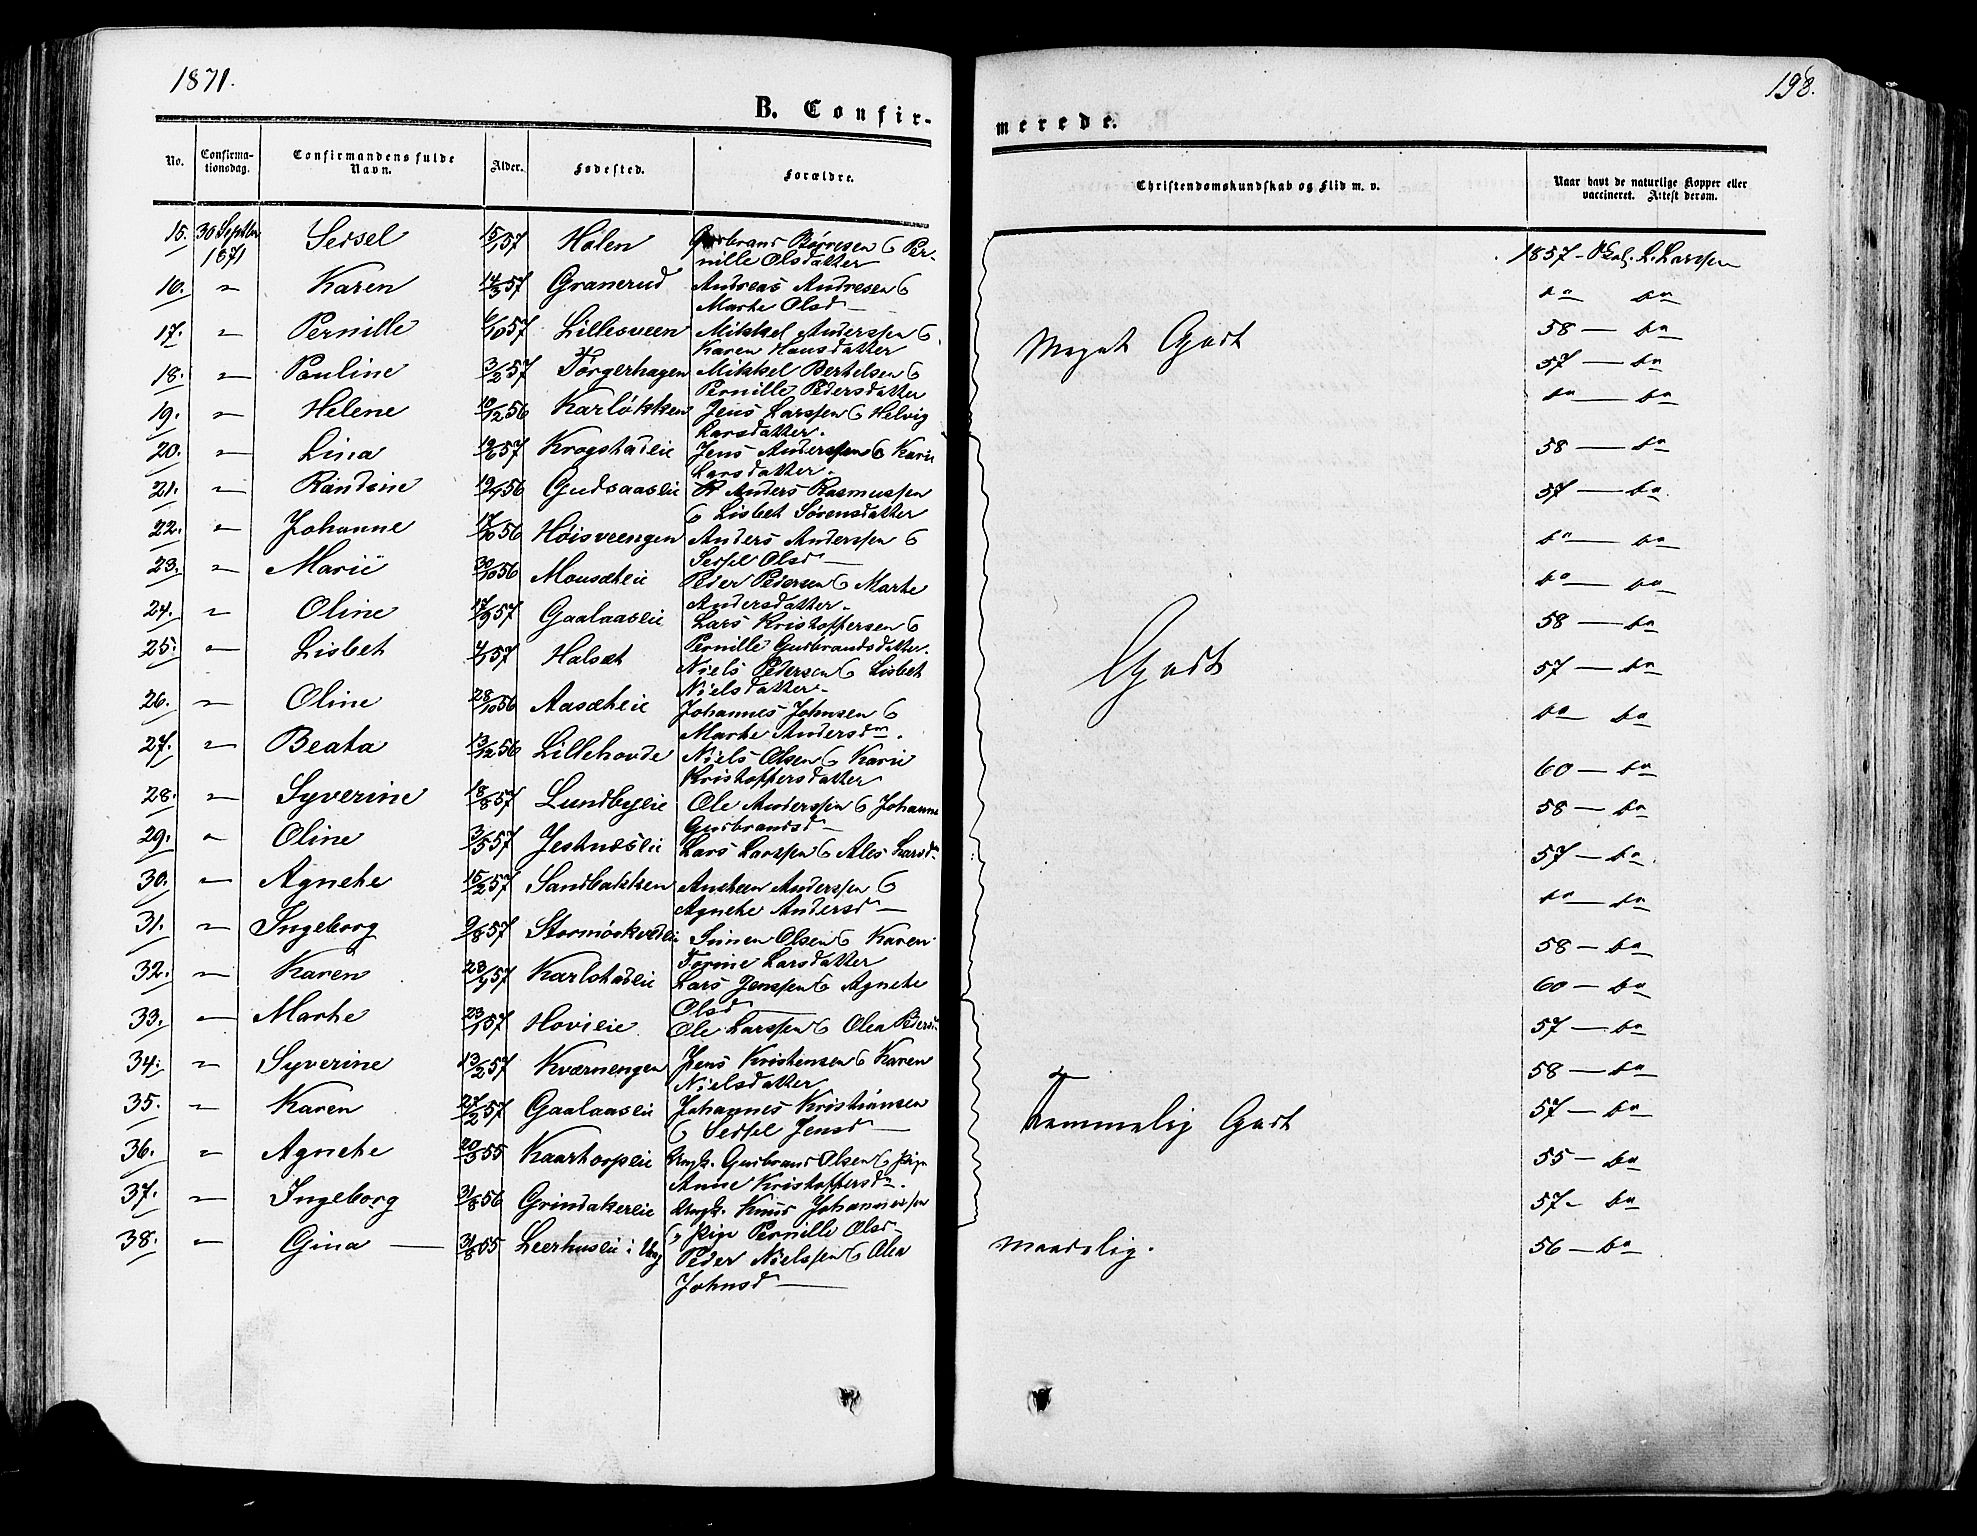 1871.
198.
B. Confir-
merede.
No.
Confirma-
tionsdag.
Confirmandens fulde
Navn.
Alder.
Fødested.
Forældre.
Christendomskundskab og Flid m. v.
Naar havt de naturlige Kopper eller
vaccineret. Attest derom.
15. 30 Septbr 1871 Sedsel 57 Holen Gudbrand Børresen & Per-
nille Olsdatter 1857 - L. Larssen
16. " Karen 14/3 57 Granerud Andreas Andresen &
Marthe Olsd — do do
17. " Pernille 57 Lillesveen Mikkel Anderssen &
Karen Hansdatter Meget Godt 58 — do
18. " Pauline 3/2 57 Torgerhagen Mikkel Bertelsen &
Pernille Pedersdatter 57 — do
19. " Helene 10/12 56 Karløkken Jens Larssen & Helvig
Larsdatter. do — do
20. " Lina 57 Krogstadeie Jens Anderssen & Karie
Larsdatter. 58 — do
21. " Randine 56 Gudsaaseie Anders Rasmussen
& Lisbet Sørensdatter 57 — do
22. " Johanne 17/10 56 Høisveengen Anders Anderssen &
Sedsel Olsd — do — do
23. " Marie 30/10 56 Mousæteie Peder Pedersen & Marthe
Andersdatter. do — do
24. " Oline 57 Gaalaaseie Lars Kristoffersen &
Pernille Gudbrandsdatter. 58 — do
25. " Lisbet 57 Halsæt Niels Pedersen & Lisbet
Nielsdatter. Godt 57 — do
26. " Oline 28/10 56 Aasæteie Johannes Johnsen &
Marthe Andersdr. do — do
27. " Beata 13/12 56 Lillehovde Niels Olsen & Karie
Kristoffersdatter 60 — do
28. " Syverine 18/8 57 Lundbyeie Ole Anderssen & Johanne
Gudbrandsd — 58 — do
29. " Oline 3/5 57 Jestnæseie Lars Larssen & Ales Larsdr 57 — do
30. " Agnethe 15/2 57 Sandbakken Andreas Anderssen &
Agnethe Andersd — do — do
31. " Ingeborg 9/8 57 Simen Olsen & Karen
Torine Larsdatter 58 — do
32. " Karen 57 Karlstadeie Lars Jenssen & Agnethe
Olsd — 60 — do
33. " Marthe 23/1 57 Hovieie Ole Larssen & Olea Pedersd 57 — do
34. " Syverine 13/2 57 Kværnengen Jens Kristensen & Karen
Nielsdatter 58 — do
35. " Karen 27/2 57 Gaalaaseie Johannes Kristiansen
& Sedsel Jensd — Temmelig Godt 57 — do
36. " Agnethe 20/3 55 Kaartorpeie Ungk. Gudbrand Olsen & Pige
Anne Kristoffersdr. 55 — do
37. " Ingeborg 31/8 56 Grindakereie Ungk. Knud Johannessen
& Pige Pernille Olsd 57 - do
38. " Gina — 31/8 55 Leerhuseie i Peder Nielssen & Olea
Johnsd — Maadelig. 56 — do